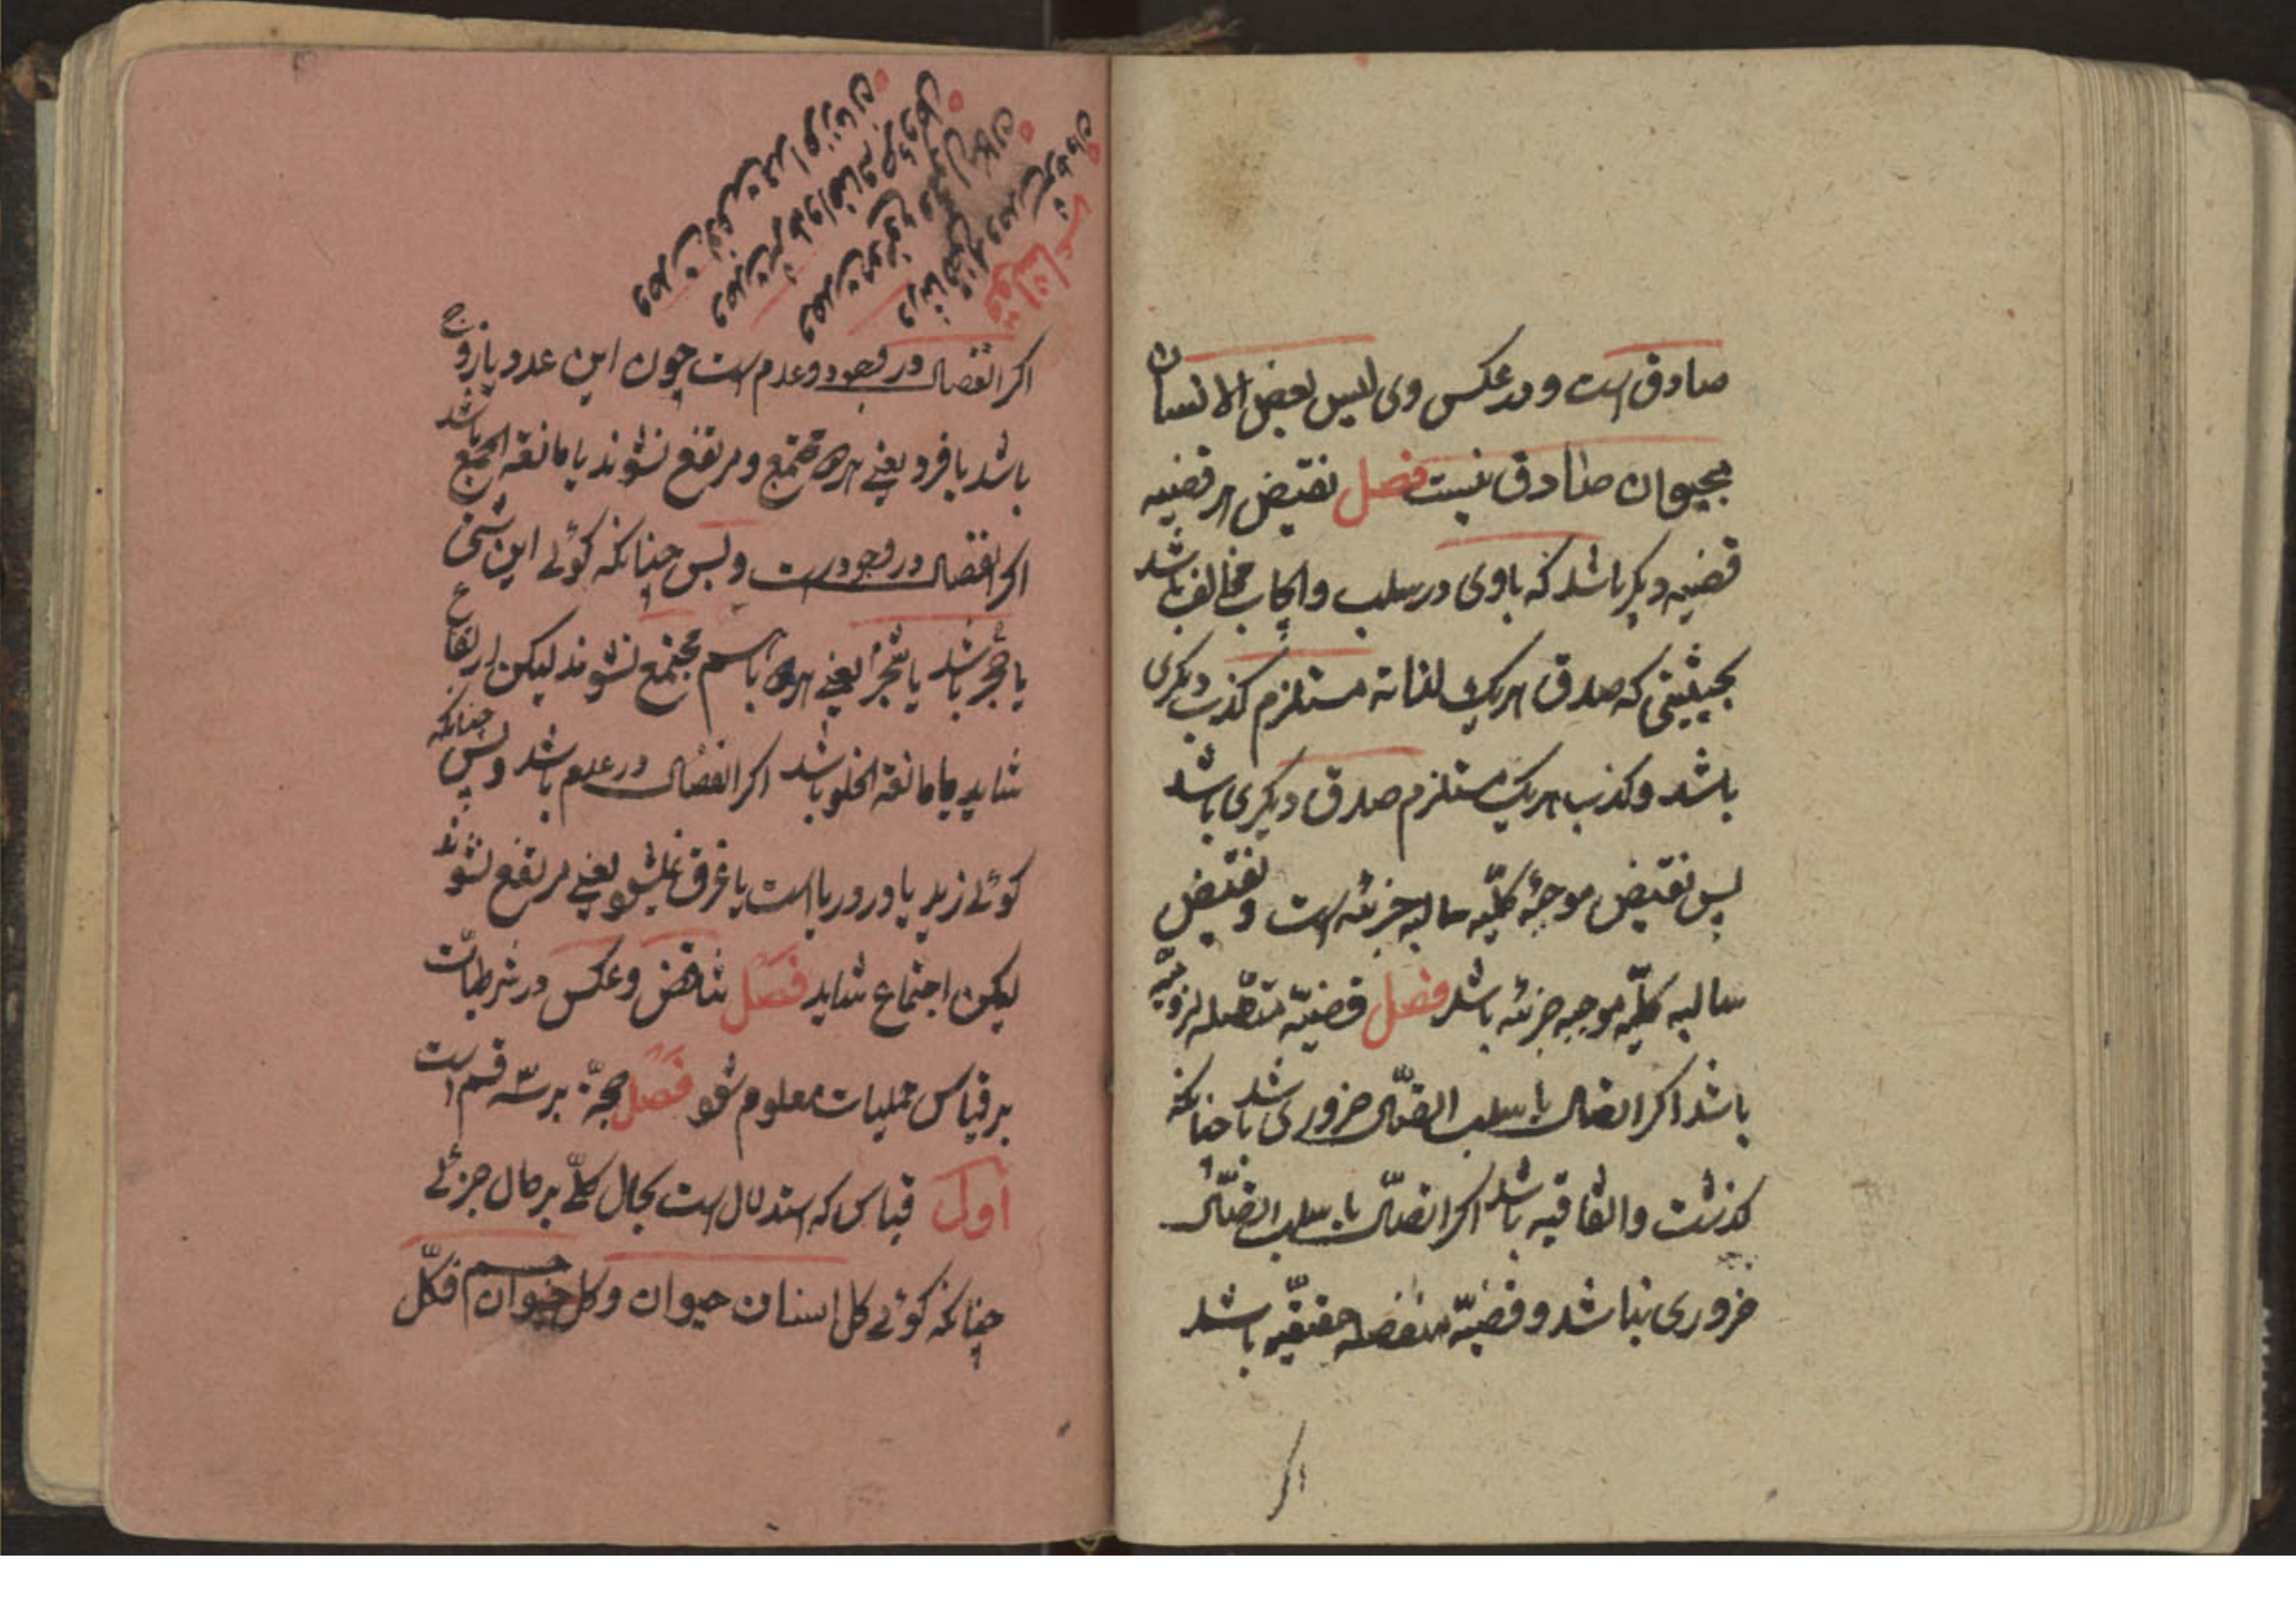 صادق است و در عکس وی لیس بعض الانسان
بحیوان صادق نیست فصل نقیض هر قضیه
قضیه دیگر باشد که با وی در سلب و ایجاب مخالف باشد
بحیثیتی که صدق هر یک لذاته مستلزم کذب دیگری
باشد و کذب هر یک مستلزم صدق دیگری باشد
پس نقیض موجبهٔ کلیّه سالبه جزئیه است و نقیض
سالبه کلیّه موجبه جزئیه باشد فصل قضیّه متصّله لزومیّه
باشد اکر اتصال یا سلب اتصّال ضروری باشد چنانکه
کذشت و اتفاقیه باشد اکر اتصّال یا سلب اتصّال
ضروری نباشد و قضیّه منفصله حقیقیّه باشد
اکر
اکر انفصال در وجود و عدم است چون این عدد یا زوج
باشد یا فرد یعنی هر دو مجتمع و مرتفع نشوند یا مانعة الجمع باشد
اکر انفصال در وجود است و بس چنانکه کوئی این شئ
یا حجر باشد یا شجر یعنی هر دو با هم مجتمع نشوند لیکن ارتفاع
شاید یا مانعة الخلو باشد اکر انفصال در عدم باشد و بس چنانکه
کوئی زید یا در دریا است یا غرق نمیشود یعنی مرتفع نشوند
لیکن اجتماع شاید فصل تناقض و عکس در شرطیّات
بر قیاس حملیات معلوم شود فصل حجّة بر سه قسم است
اول قیاس که استدلال است بحال کلّی بر حال جزئی
چنانکه کوئی کل انسان حیوان و کل حیوان جسم فکلّ
در تناقض هشت وحدت شرط دان
وحدت موضوع و محمول و مکان
وحدت شرط و اضافه جزء و کل
قوه و فعل است در آخر زمان